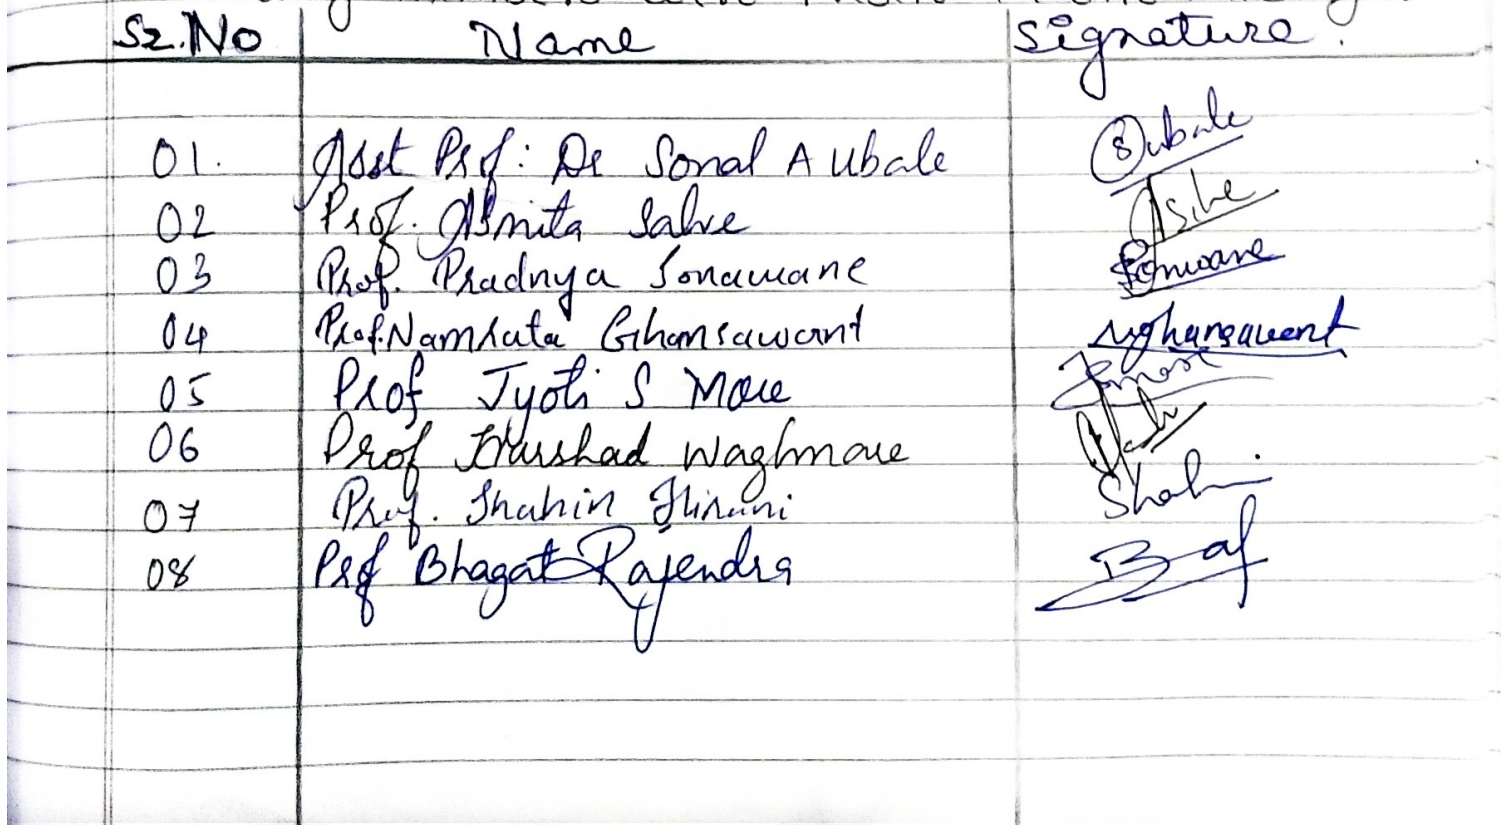 Sr.No Name Signature.
01. Asst Prof: Dr Sonal A Ubale Subale
02 Prof. Asmita Salve
03 Prof. Pradnya Sonawane Sonwane
04 Prof. Namrata Ghansawant nghansawant
05 Prof Jyoti S More Jmore
06 Prof Harshad Waghmare
07 Prof. Shahin Hirani
08 Prof Bhagat Rajendra